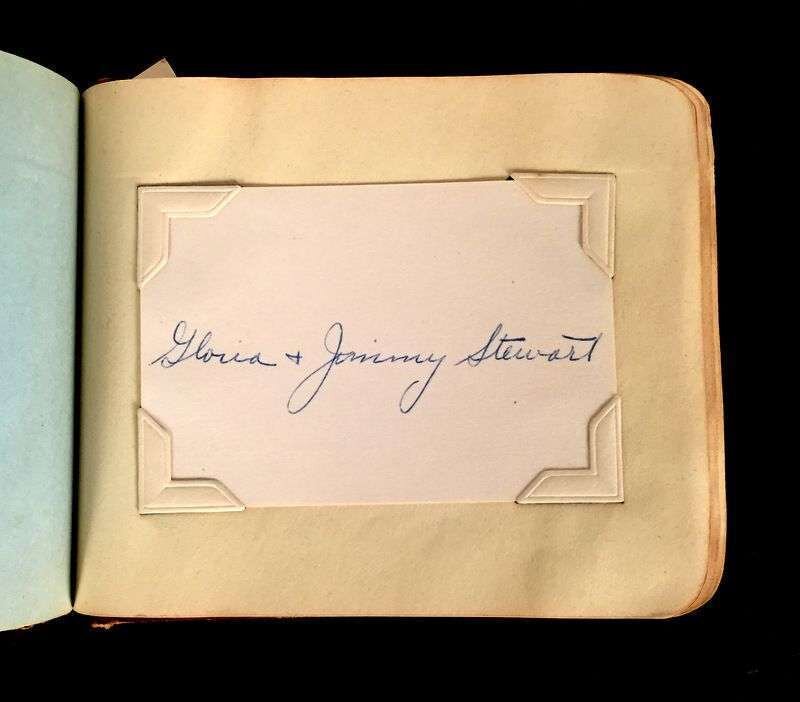 Gloria + Jimmy Stewart